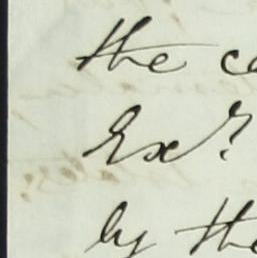 the
Exr.
by the